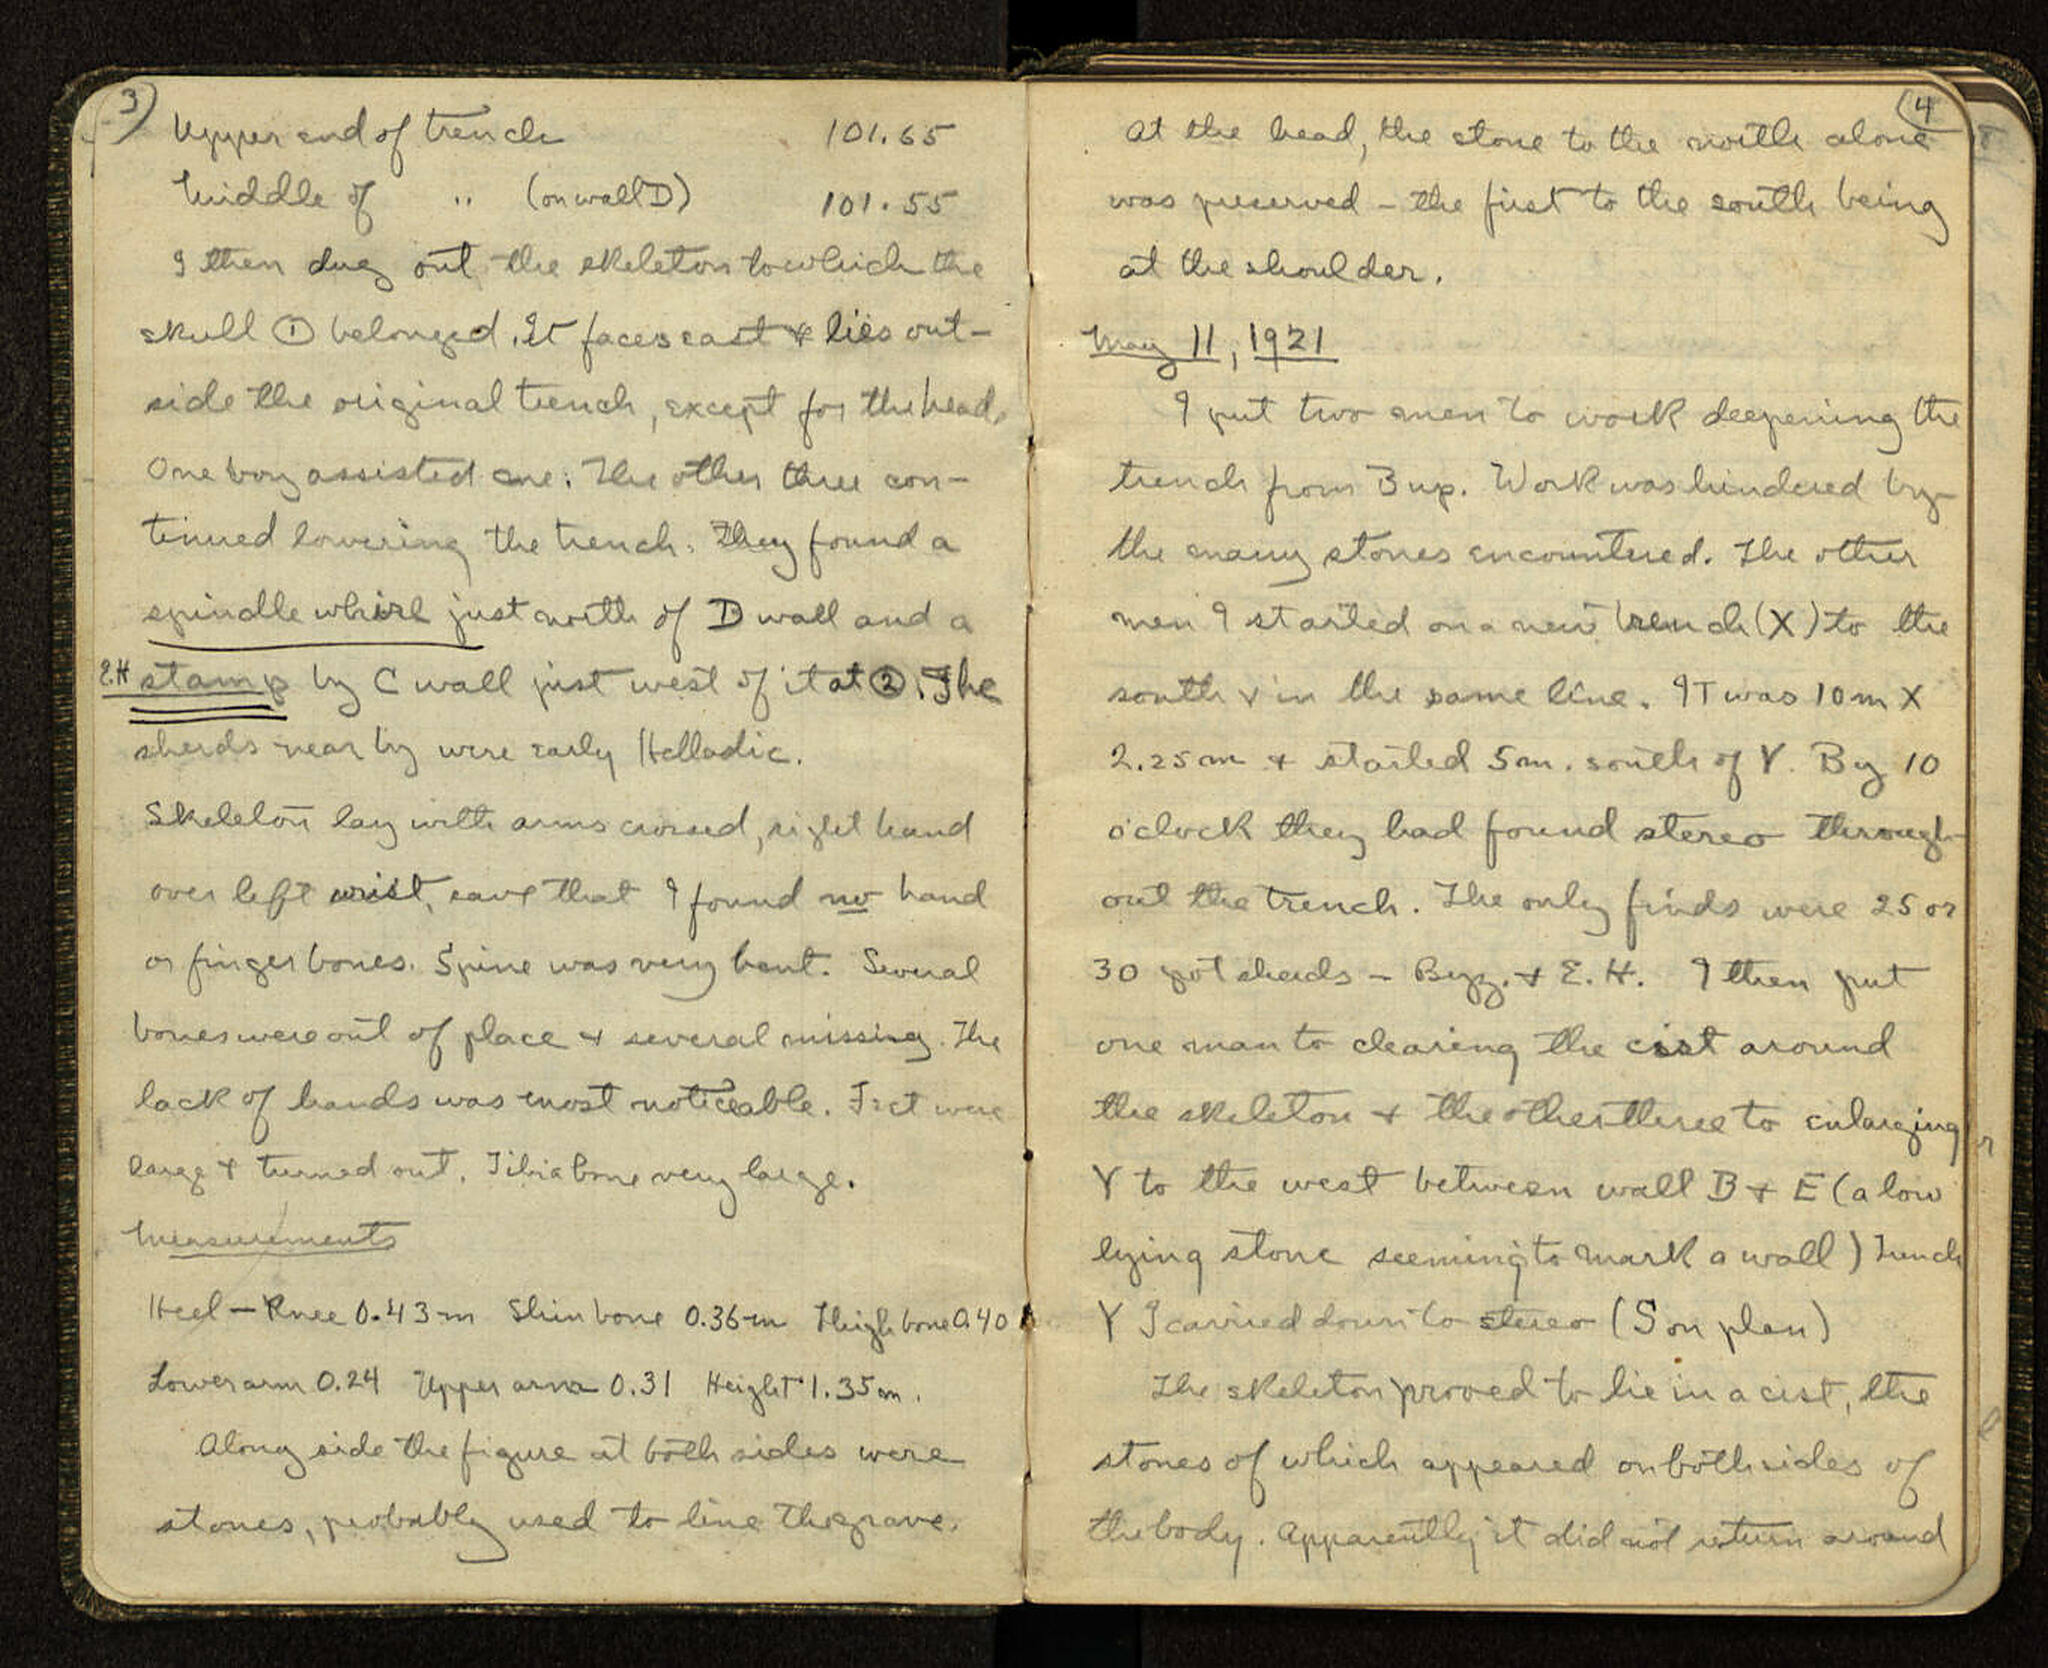 3)
Upper end of trench 101.65
Middle of " (on wall D) 101.55
I then dug out the skeleton to which the
skull ① belonged. It faces east & lies out-
side the original trench, except for the head.
One boy assisted me. The other three con-
tinued lowering the trench. They found a
spindle whirl just north of D wall and a
E.H stamp by C wall just west of it at ②. The
sherds near by were early Helladic.
Skeleton lay with arms crossed, right hand
over left wrist, save that I found no hand
or finger bones. Spine was very bent. Several
bones were out of place & several missing. The
lack of hands was most noticeable. Feet were
large & turned out. Tibia bone very large.
Measurements
Heel — Knee 0.43 m Shin bone 0.36 m Thigh bone 0.40
Lower arm 0.24 Upper arm 0.31 Height 1.35 m.
Along side the figure at both sides were
stones, probably used to line the grave.
(4
At the head, the stone to the north alone
was preserved – the first to the south being
at the shoulder.
May 11, 1921
I put two men to work deepening the
trench from B up. Work was hindered by
the many stones encountered. The other
men I started on a new trench (X) to the
south & in the same line. It was 10 m X
2.25 m & started 5 m. south of Y. By 10
o'clock they had found stereo through-
out the trench. The only finds were 25 or
30 pot sherds – Byz. & E.H. I then put
one man to clearing the cist around
the skeleton & the other three to enlarging
Y to the west between wall B & E (a low
lying stone seeming to mark a wall) Trench
Y I carried down to stereo (S on plan)
The skeleton proved to lie in a cist, the
stones of which appeared on both sides of
the body. Apparently it did not return around